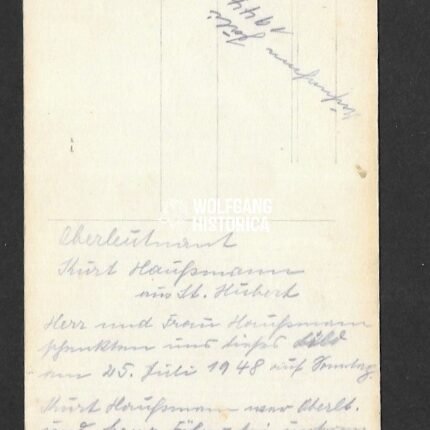 Juli
1944
WOLFGANG
HISTORICA
Oberleutnant
Kurt Haußmann
aus St. Hubert
Herr und Frau Haußmann
schenkten uns dieses Bild
am 25. Juli 1948 auf Sonntag.
Kurt Haußmann war Oberlt.
und